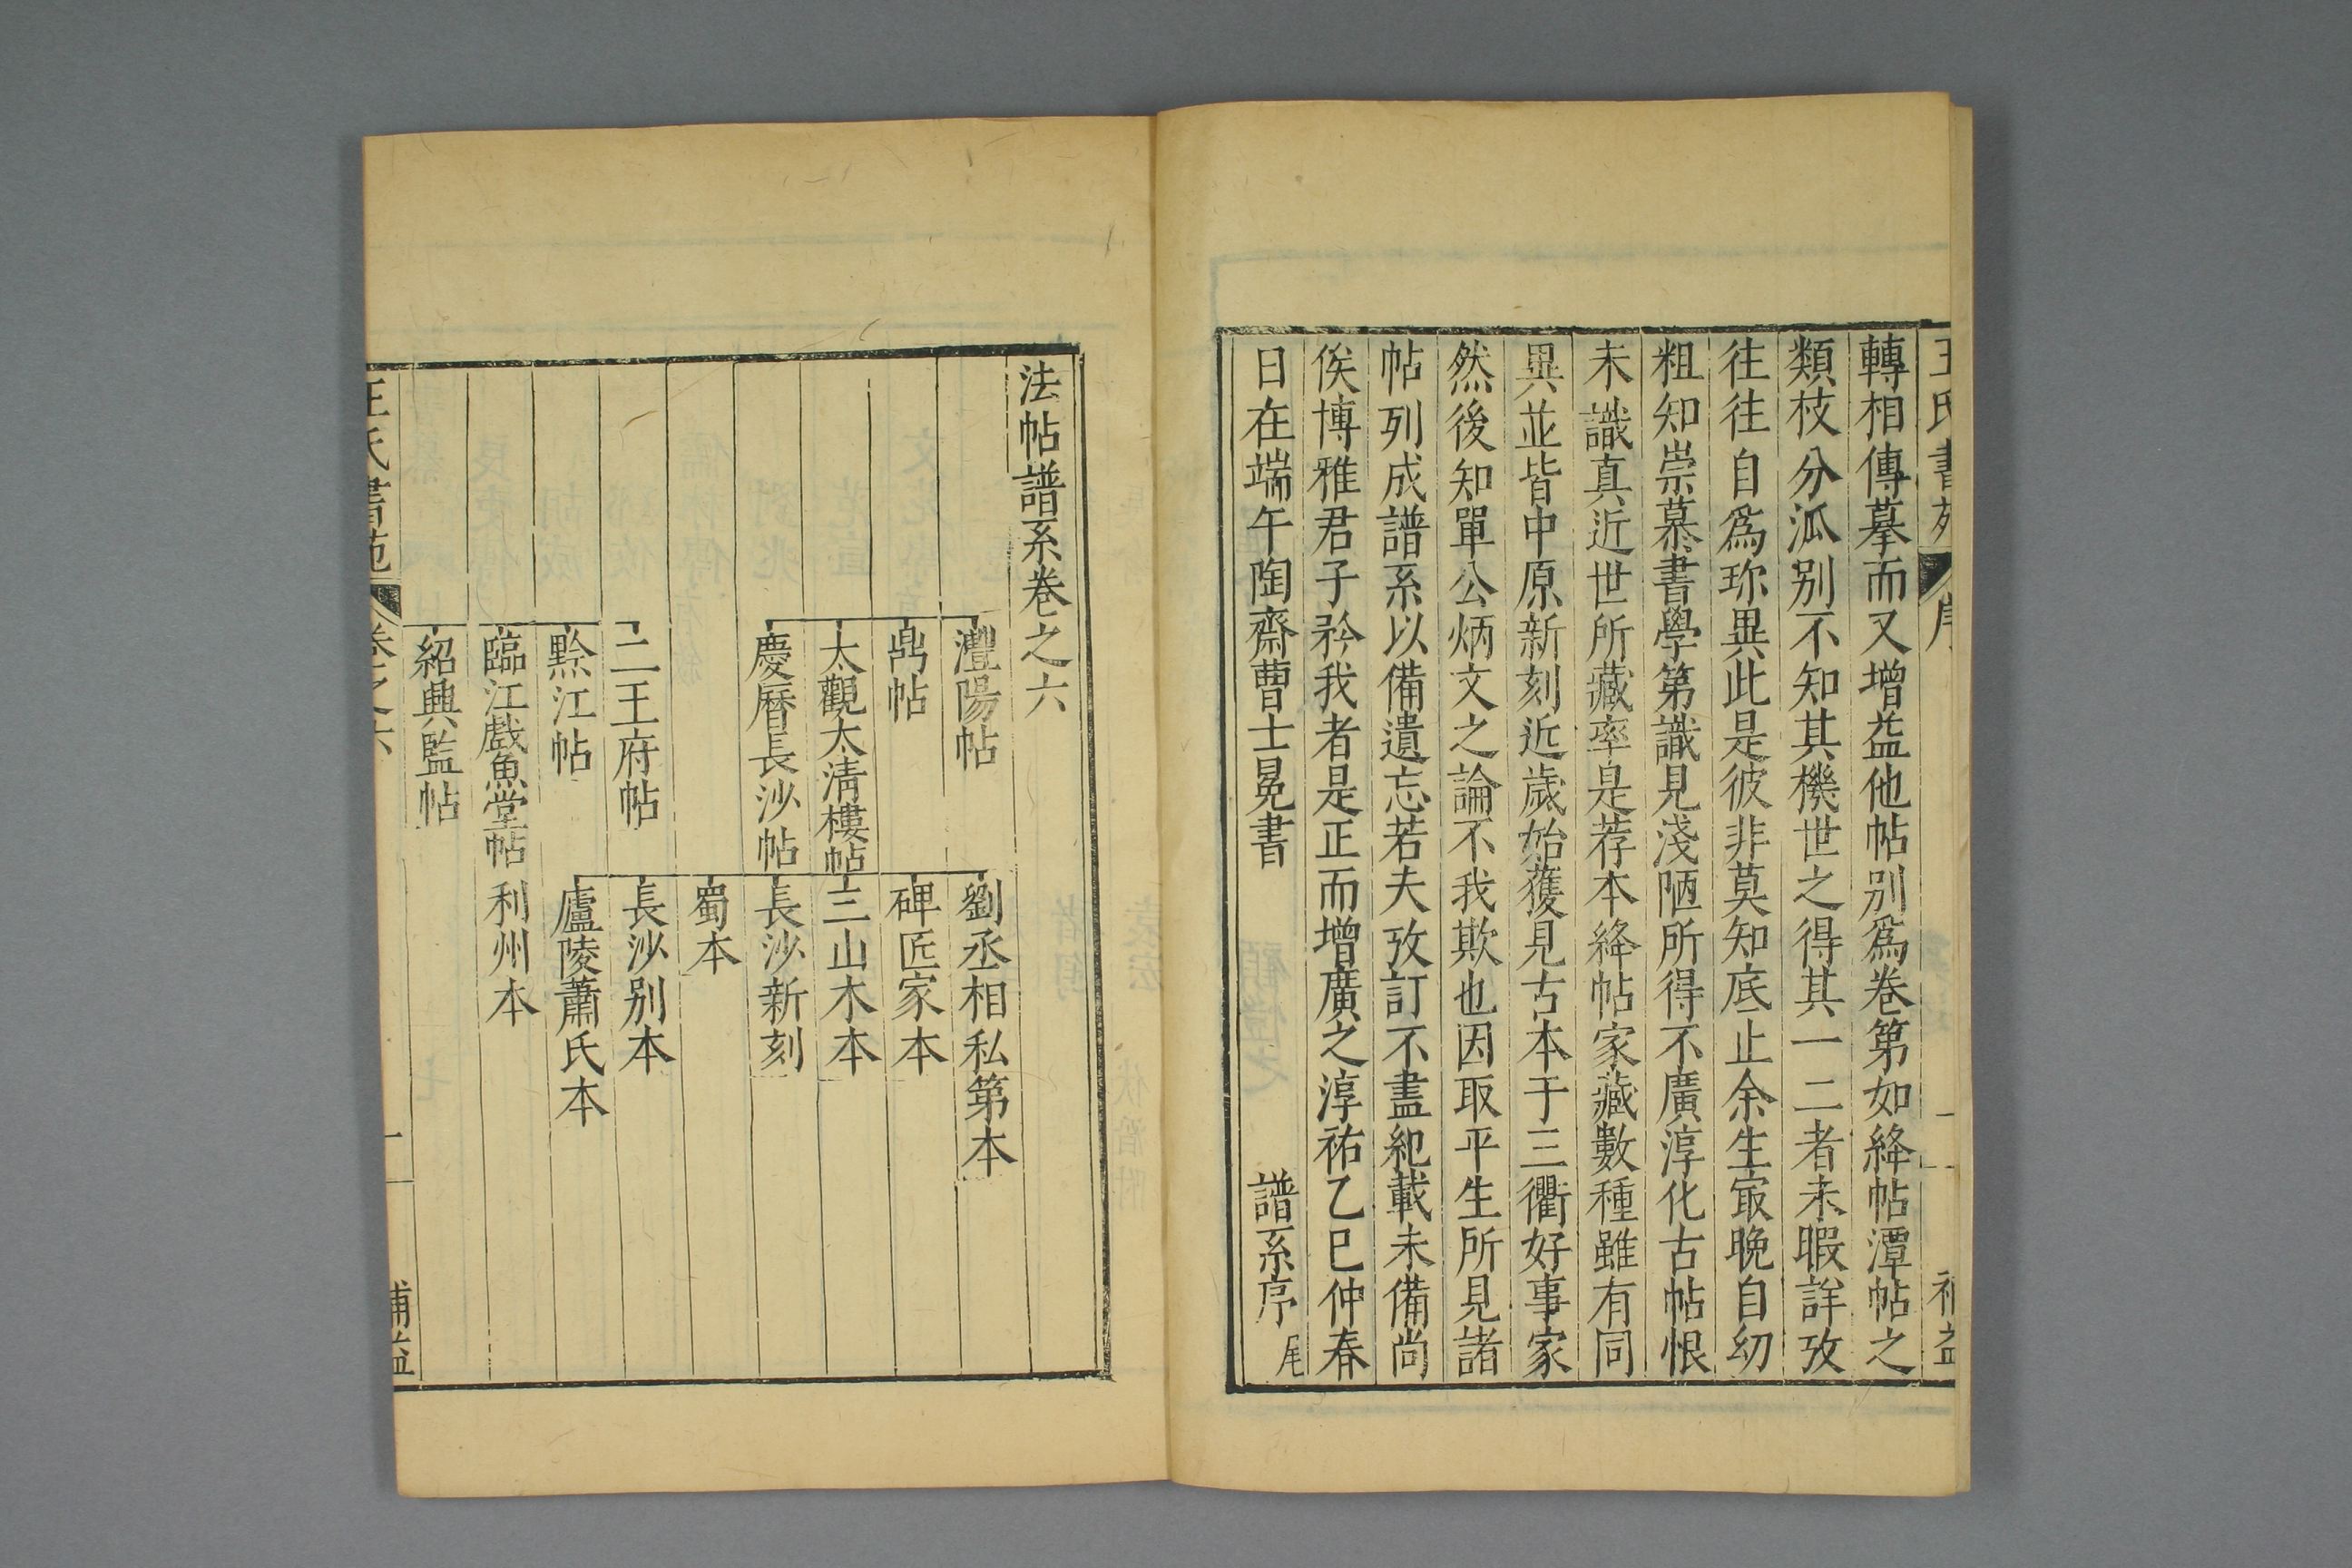 王氏書苑 序 一 補益
轉相傳摹而又增益他帖别爲卷第如絳帖潭帖之
類枝分派别不知其機世之得其一二者未暇詳攷
往往自爲珎異此是彼非莫知底止余生㝡晚自幼
粗知崇慕書學第識見淺陋所得不廣淳化古帖恨
未識真近世所藏率是荐本絳帖家藏數種雖有同
異並皆中原新刻近歲始獲見古本于三衢好事家
然後知單公炳文之論不我欺也因取平生所見諸
帖列成譜系以備遺忘若夫攷訂不盡紀載未備尚
俟博雅君子矜我者是正而增廣之淳祐乙巳仲春
日在端午陶齋曹士冕書 譜系序 尾
法帖譜系卷之六
灃陽帖 劉丞相私第本
鼎帖 碑匠家本
太觀太淸樓帖 三山木本
慶曆長沙帖 長沙新刻
蜀本
二王府帖 長沙别本
黔江帖 廬陵蕭氏本
臨江戲魚堂帖 利州本
紹興監帖
王氏書苑 卷之六 一 補益